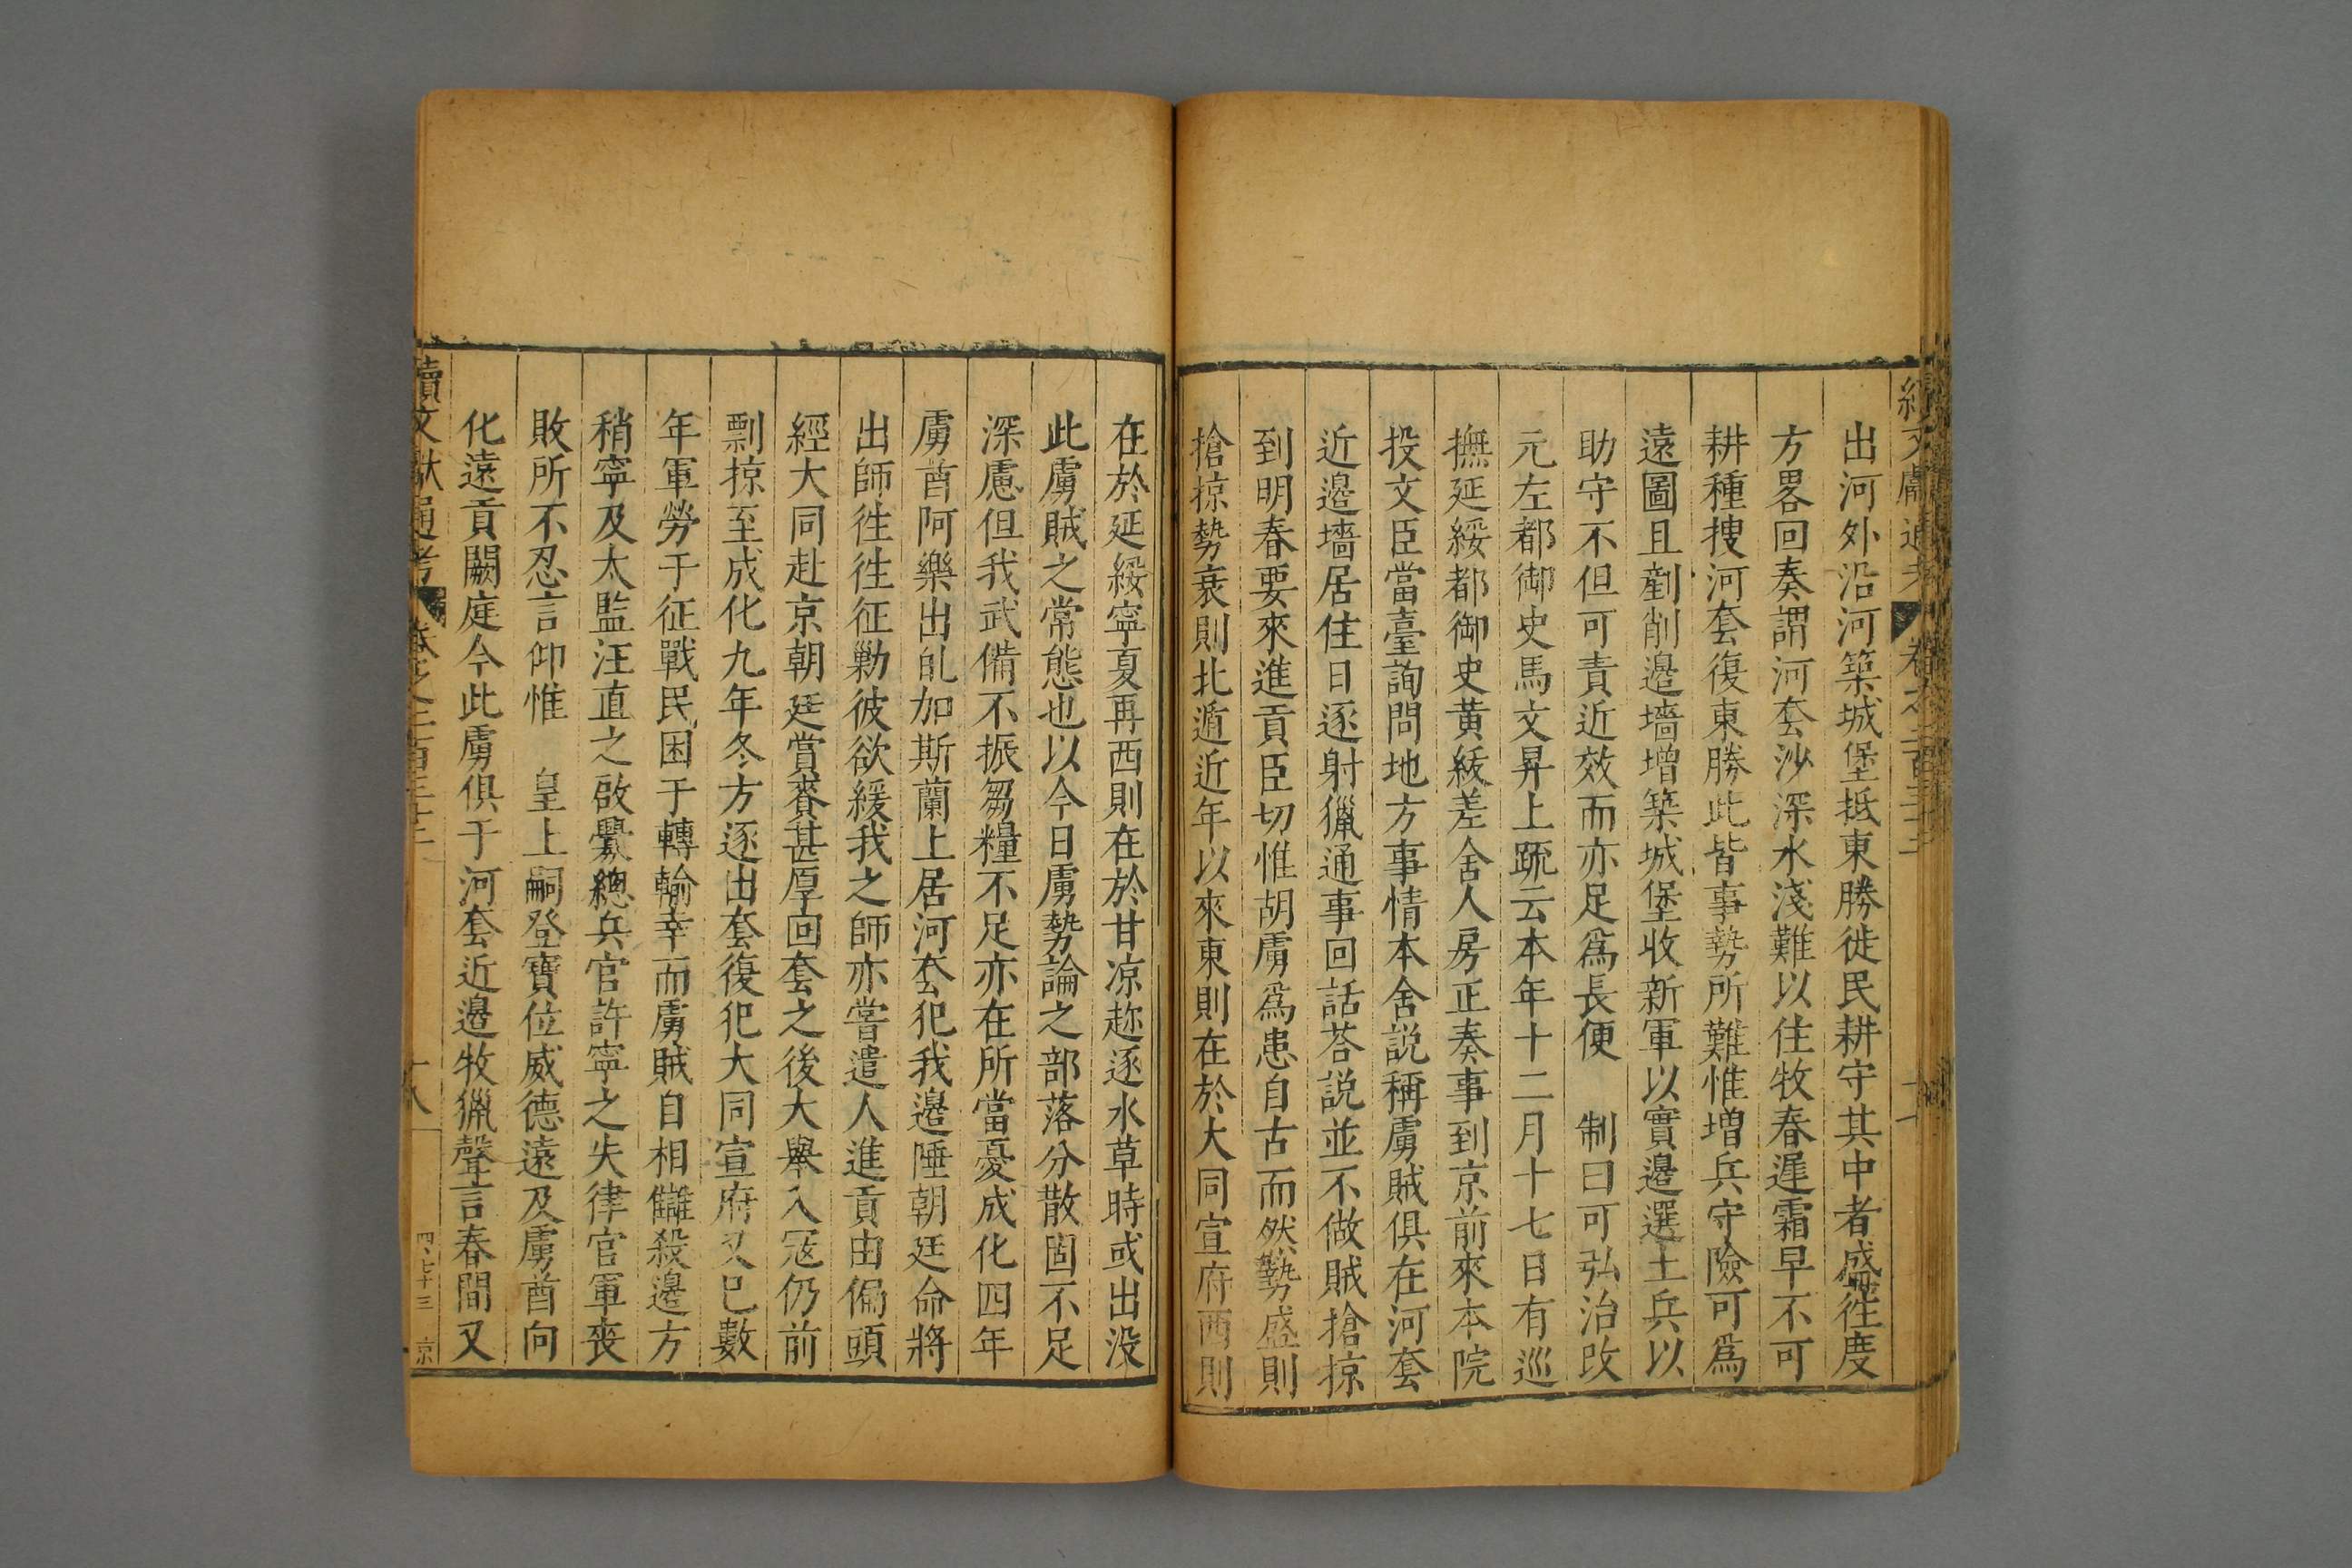 出河外沿河築城堡抵東勝徙民耕守其中者盛徃度
方畧回奏謂河套沙深水淺難以住牧春遲霜早不可
耕種搜河套復東勝此皆事勢所難惟增兵守險可爲
遠圖且剷削邊墻增築城堡收新軍以實邊選土兵以
助守不但可責近效而亦足爲長便　制曰可弘治改
元左都御史馬文昇上䟽云本年十二月十七日有巡
撫延綏都御史黃紱差舍人房正奏事到京前來本院
投文臣當臺詢問地方事情本舍説稱虜賊俱在河套
近邊墻居住日逐射獵通事回話荅説並不做賊搶掠
到明春要來進貢臣切惟胡虜爲患自古而然勢盛則
搶掠勢衰則北遁近年以來東則在於大同宣府西則
在於延綏寧夏再西則在於甘凉趂逐水草時或出没
此虜賊之常態也以今日虜勢論之部落分散固不足
深慮但我武備不振芻糧不足亦在所當憂成化四年
虜酋阿樂出乩加斯蘭上居河套犯我邊陲朝廷命將
出師徃徃征勦彼欲緩我之師亦嘗遣人進貢由偏頭
經大同赴京朝廷賞賚甚厚回套之後大舉入宼仍前
剽掠至成化九年冬方逐出套復犯大同宣府又巳數
年軍勞于征戰民困于轉輸幸而虜賊自相讎殺邊方
稍寧及太監汪直之啟釁總兵官許寧之失律官軍喪
敗所不忍言仰惟　皇上嗣登寶位威德遠及虜酋向
化遠貢闕庭今此虜俱于河套近邊牧獵聲言春間又
續文獻通考
十八
四、七十三　京